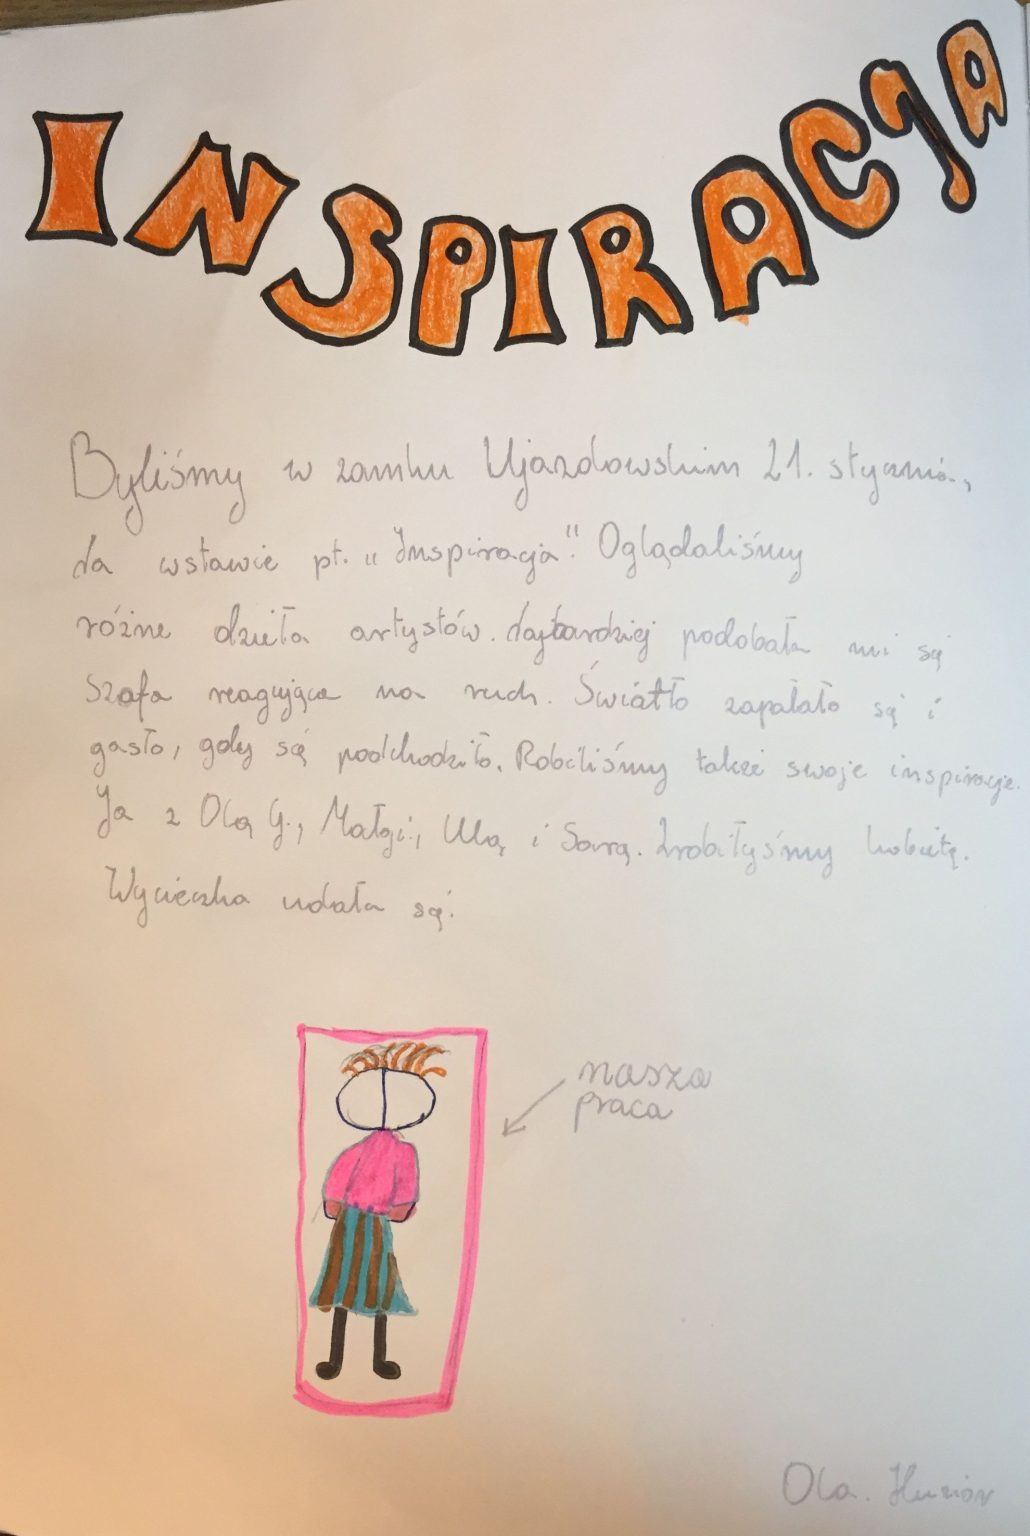 INSPIRACJA
Byliśmy w zamku Ujazdowskim 21. stycznia,
Na wstawie pt. „Inspiracja". Oglądaliśmy
różne dzieła artystów. Najbardziej podobała mi są
szafa reagująca na ruch. Światło zapalało są i
gasło, gdy są podchodziło. Robiliśmy także swoje inspiracje.
Ja z Olą G., Małgi., Ulą i Sarą. Zrobiłyśmy kobietę.
Wycieczka udała są.
nasza
praca
Ola.